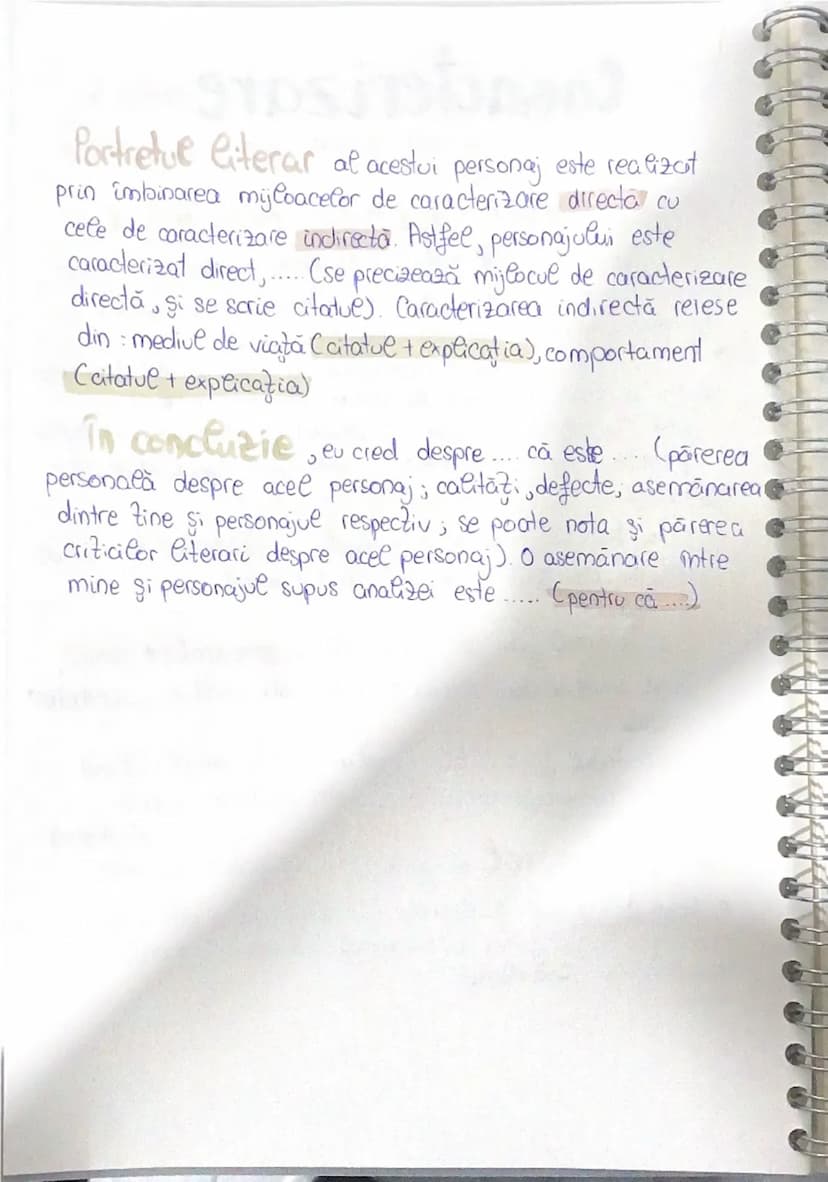 Portretul literar al acestui personaj este realizat
prin îmbinarea mijloacelor de caracterizare directă cu
cele de caracterizare indirectă. Astfel, personajului este
caracterizat direct, ..... (se precizează mijlocul de caracterizare
directă, și se scrie citatul). Caracterizarea indirectă reiese
din : mediul de viață (citatul + explicația), comportament
(citatul + explicația)
În concluzie, eu cred despre .... că este .... (părerea
personală despre acel personaj; calități, defecte, asemănarea
dintre tine și personajul respectiv; se poate nota și părerea
criticilor literari despre acel personaj). O asemănare între
mine și personajul supus analizei este ..... (pentru că ....)